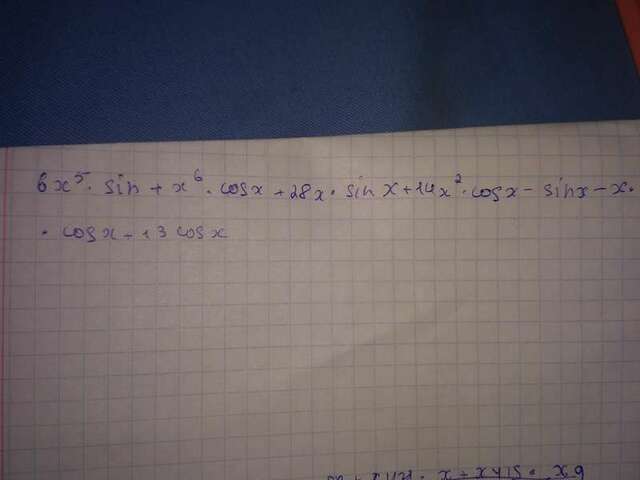 6x⁵· sin + x⁶· cosx + 28x · sin x + 14x² · cosx - sinx - x·
· cosx + 13 cosx